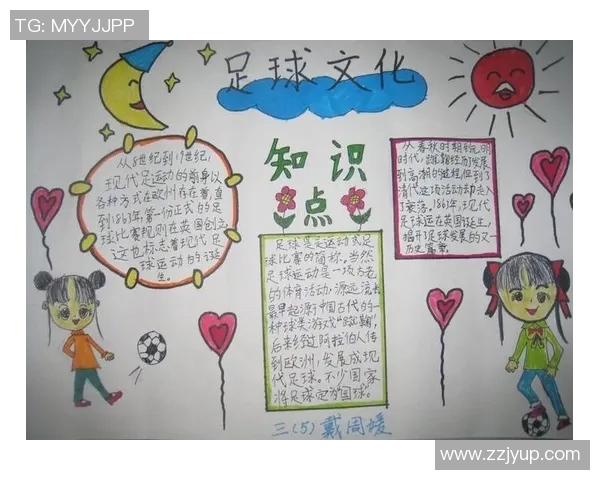 TG: MYYJJPP
足球文化
从8世纪到19世纪,
现代足运动的前身以
各种方式在欧州存在着,直
到1863年,第一份正式的足
球比赛规则在英国创立,
这也标志着现代足
球运动的诞
生。
知识
点
足球是足运动或足
球比赛的简称。当然
足球运动是一项古老
的体育活动,源远流长
最早起源于中国古代的一
种球类游戏“蹴鞠”,
后来经过阿拉伯人传
到欧洲,发展成现
代足球。不少国家
将足球定为“国球。
从春秋时期到元明
时代,蹴鞠经历发展
到高潮的进程,但到了
清代这项活动却走入
了衰落。1863年,现代
足球运在英国诞生,
揭开了足球发展的又一
历史篇章
三(5)戴周媛
www.zzjyup.com